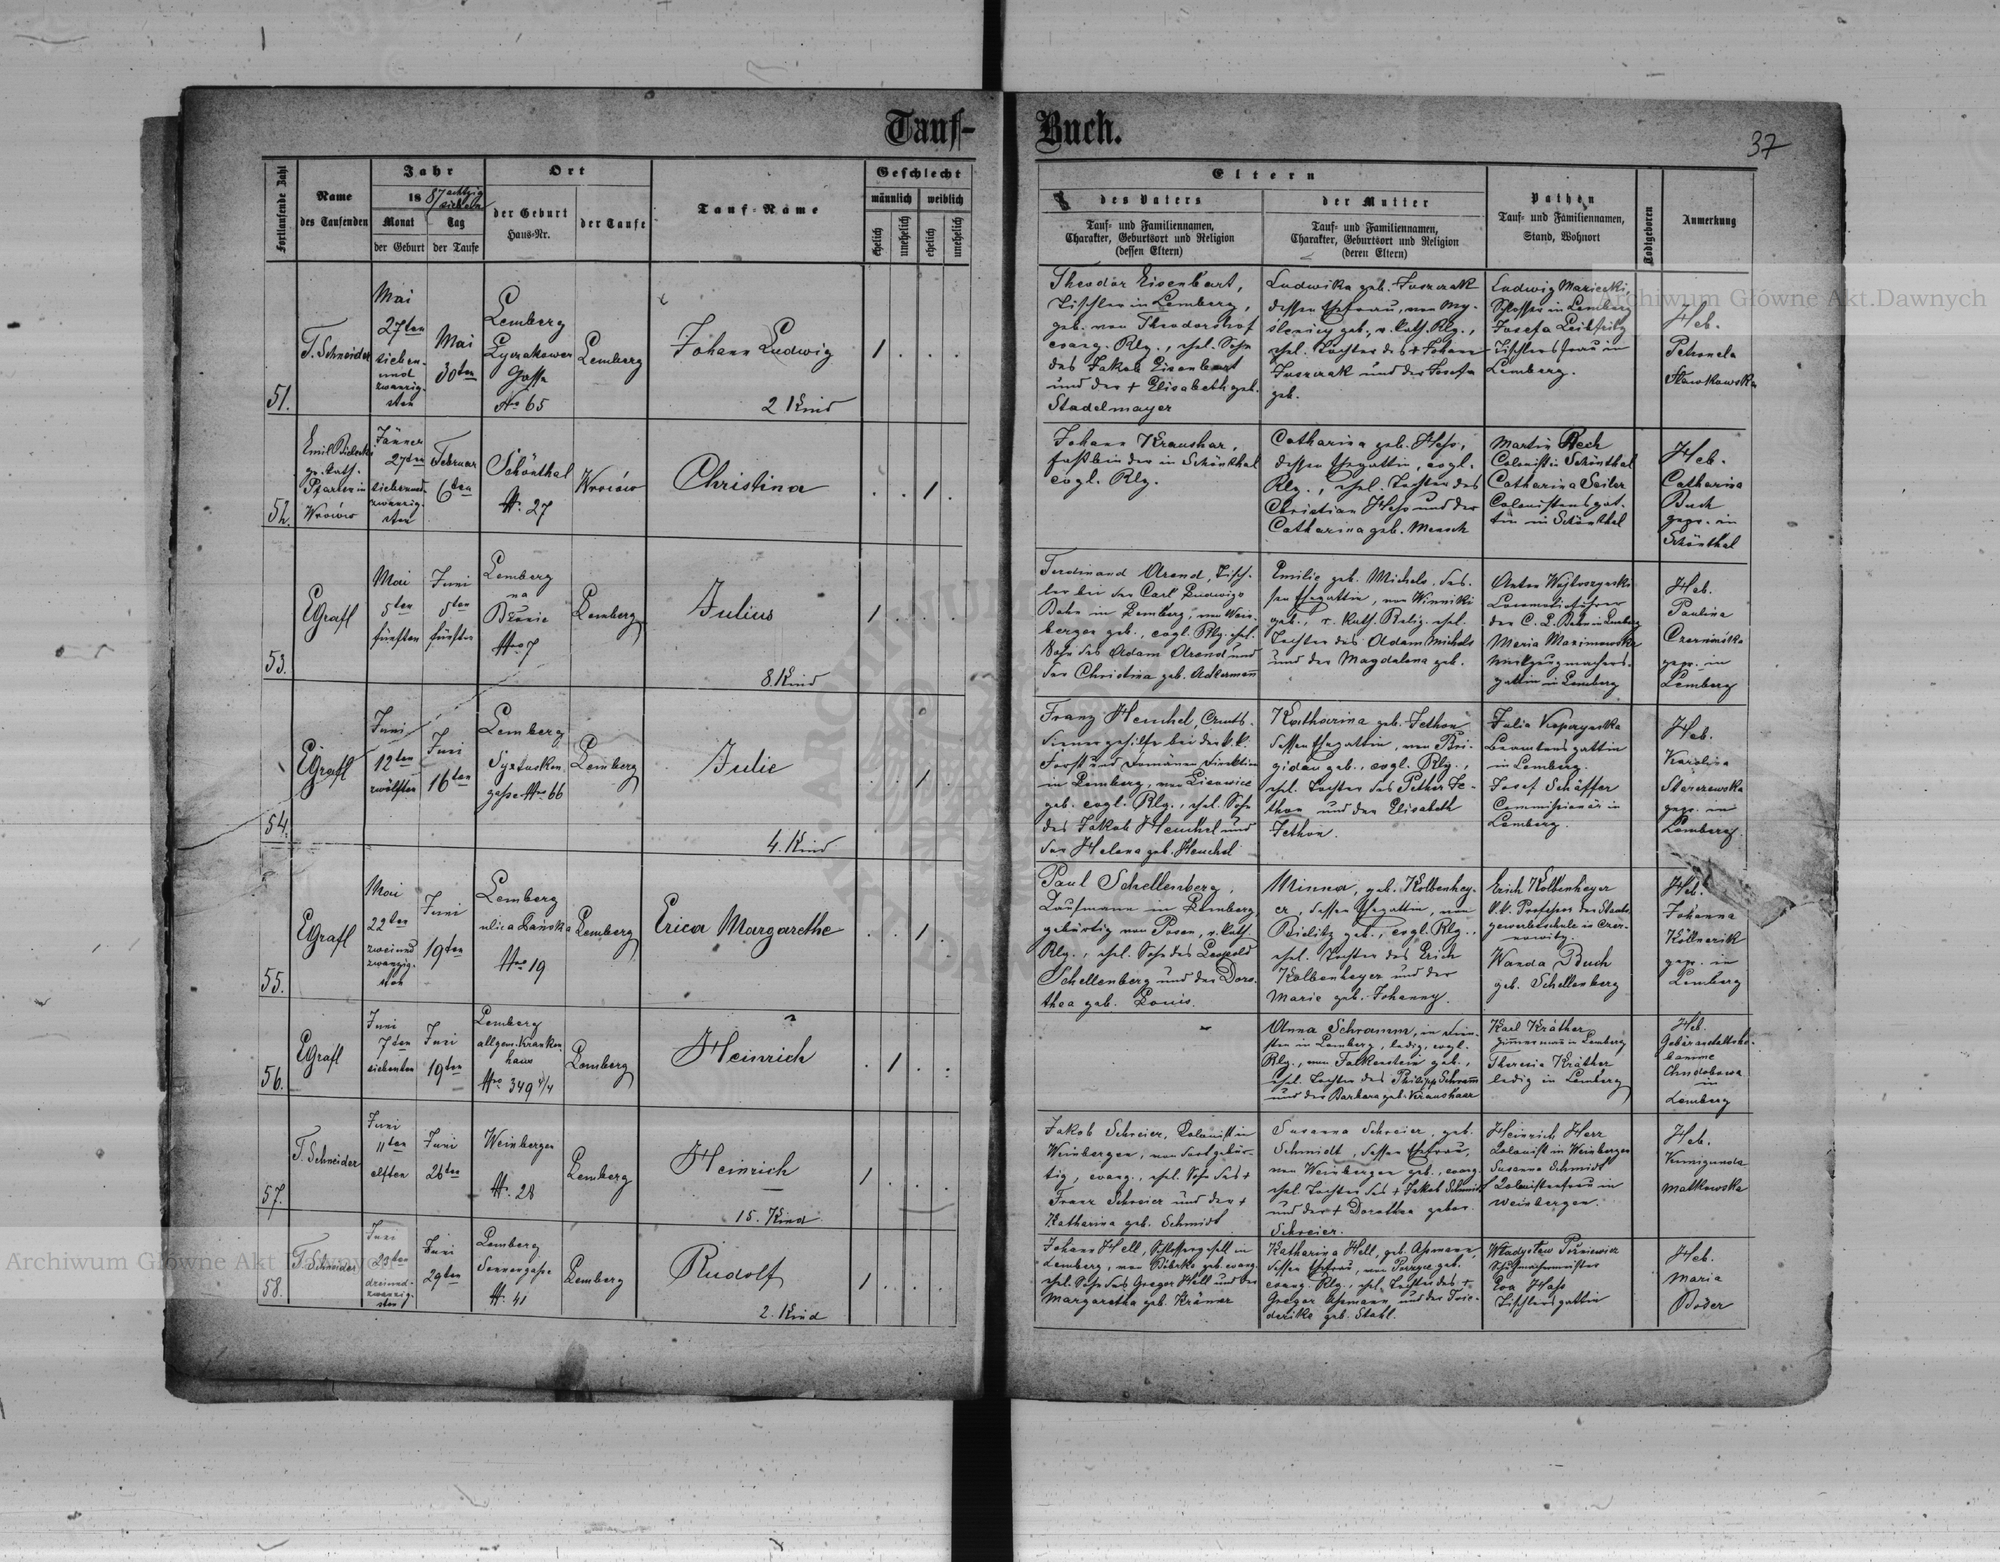 Tauf-
Buch.
37
Fortlaufende Zahl
Name
des Taufenden
Jahr
1887 achtzig
sieben
Monat
der Geburt
Tag
der Taufe
Ort
der Geburt
Haus-Nr.
der Taufe
Tauf-Name
Geschlecht
männlich
weiblich
ehelich
unehelich
ehelich
unehelich
Eltern
des Vaters
Tauf- und Familiennamen,
Charakter, Geburtsort und Religion
(dessen Eltern)
der Mutter
Tauf- und Familiennamen,
Charakter, Geburtsort und Religion
(deren Eltern)
Pathen
Tauf- und Familiennamen,
Stand, Wohnort
Todtgeboren
Anmerkung
51.
T. Schneider
Mai
27ten
sieben-
und
zwanzig-
sten
Mai
30ten
Lemberg
Lyczakower
Gasse
Nro 65
Lemberg
Johann Ludwig
2. Kind
1
Theodor Eisenbart,
Tischler in Lemberg,
geb. von Theodorshof
evang. Rlg., ehel. Sohn
des Jakob Eisenbart
und der + Elisabeth geb.
Stadelmayer
Ludwika geb.
dessen Ehefrau, von My-
ślenicy geb., r. kath. Rlg.,
ehel. Tochter des + Johann
und der Josefa
geb.
Ludwig Mariecki,
Schlosser in Lemberg
Josefa
Tischlersfrau in
Lemberg.
Heb.
Petronela
Sławkowska
52.
Emil
gr. kath.
Pfarrer in
Wrołów
Jänner
27ten
siebenund-
zwanzig-
sten
Februar
6ten
Schönthal
Nr. 27
Christina
1
Johann Kraushar,
Fassbinder in Schönthal
evgl. Rlg.
Catharina geb. Hess,
dessen Ehegattin, evgl.
Rlg., ehel. Tochter des
Christian Hess und der
Catharina geb. Mensch
Martin Bech
Colonist in Schönthal
Catharina Seiler
Colonistensgat-
tin in Schönthal
Heb.
Catharina
Buch
gepr. in
Schönthal
53.
EGrafl
Mai
5ten
fünften
Juni
5ten
fünften
Lemberg
na
Błonie
Nro 7
Lemberg
Julius
8. Kind
1
Ferdinand Arend, Tisch-
ler bei der Carl Ludwigs
Bahn in Lemberg, von Wein-
bergen geb., evgl. Rlg. ehel.
Sohn des Adam Arend und
der Christina geb. Ackermann
Emilie geb. Michele, des-
sen Ehegattin, von Winniki
geb., r. kath. Relig. ehel.
Tochter des Adam Michele
und der Magdalena geb.
Anton
Locomotivführer
der C. L. Bahn in Lemberg
Maria Maximowska
gattin in Lemberg
Heb.
Paulina
gepr. in
Lemberg
54.
EGrafl
Juni
12ten
zwölften
Juni
16ten
Lemberg
Syxtusken-
gasse Nro 66
Lemberg
Julie
4. Kind
1
Franz Henchel, Amts-
dienergehilfe bei der k.k.
Forst und Domänen Direktion
in Lemberg, von
geb. evgl. Rlg., ehel. Sohn
des Jakob Henchel und
der Helena geb. Henchel
Katharina geb. Jethon
dessen Ehegattin, von Bri-
gidau geb., evgl. Rlg.,
ehel. Tochter des Pether Je-
thon und der Elisabeth
Jethon.
Julia
Beamtensgattin
in Lemberg.
Josef Schäffer
Commissionär in
Lemberg.
Heb.
Karolina
gepr. in
Lemberg
55.
EGrafl
Mai
22ten
zweiund
zwanzig-
sten
Juni
19ten
Lemberg
ulica Pańska
Nro 19
Lemberg
Erica Margarethe
1
Paul Schellenberg,
Kaufmann in Lemberg,
gebürtig von Posen, r. kath.
Rlg., ehel. Sohn des Leopold
Schellenberg und der Doro-
thea geb. Louis.
Minna, geb. Kolbenhey-
er, dessen Ehegattin, von
Bielitz geb., evgl. Rlg.,
ehel. Tochter des Erich
Kolbenheyer und der
Marie geb. Johanny.
Erich Kolbenheyer
k.k. Professor der Staats-
gewerbeschule in Czer-
nowitz.
Wanda Buch
geb. Schellenberg
Heb.
Johanna
Köllnerik
gepr. in
Lemberg
56.
EGrafl
Juni
7ten
siebenten
Juni
19ten
Lemberg
allgem. Kranken
haus
Nro 349 4/4
Lemberg
Heinrich
1
Anna Schramm, in Dien-
sten in Lemberg, ledig, evgl.
Rlg., von Falkenstein geb.,
ehel. Tochter des Philipp Schramm
und der Barbara geb. Kraushaar
Karl Kräther
Zimmermann in Lemberg
Theresia Kräther
ledig in Lemberg
Heb.
Gebäranstaltshe-
bamme
in
Lemberg
57.
T. Schneider
Juni
11ten
elften
Juni
26ten
Weinbergen
Nr. 28
Lemberg
Heinrich
15. Kind
1
Jakob Schreier, Colonist in
Weinbergen, von dort gebür-
tig, evang., ehel. Sohn des +
Franz Schreier und der +
Katharina geb. Schmidt
Susanna Schreier, geb.
Schmidt, dessen Ehefrau,
von Weinbergen geb., evang.
ehel. Tochter des + Jakob Schmidt
und der + Dorothea gebor.
Schreier.
Heinrich Herr
Colonist in Weinbergen
Susanna Schmidt
Colonistenfrau in
Weinbergen.
Heb.
Kunigunda
Malkowska
58.
T. Schneider
Juni
23ten
dreiund-
zwanzig-
sten
Juni
29ten
Lemberg
Sonnengasse
Nr. 41
Lemberg
Rudolf
2. Kind
1
Johann Hell, Schlossergesell in
Lemberg, von geb. evang.
ehel. Sohn des Gregor Hell und der
Margaretha geb. Krämer
Katharina Hell, geb. Assmann,
dessen Ehefrau, von geb.
evang. Rlg., ehel. Tochter des +
Gregor Assmann und der Frie-
derike geb. Stahl.
Władysław
Schuhmachermeister
Eva Hass
Tischlersgattin
Heb.
Maria
Boder
Archiwum Główne Akt Dawnych
Archiwum Główne Akt Dawnych